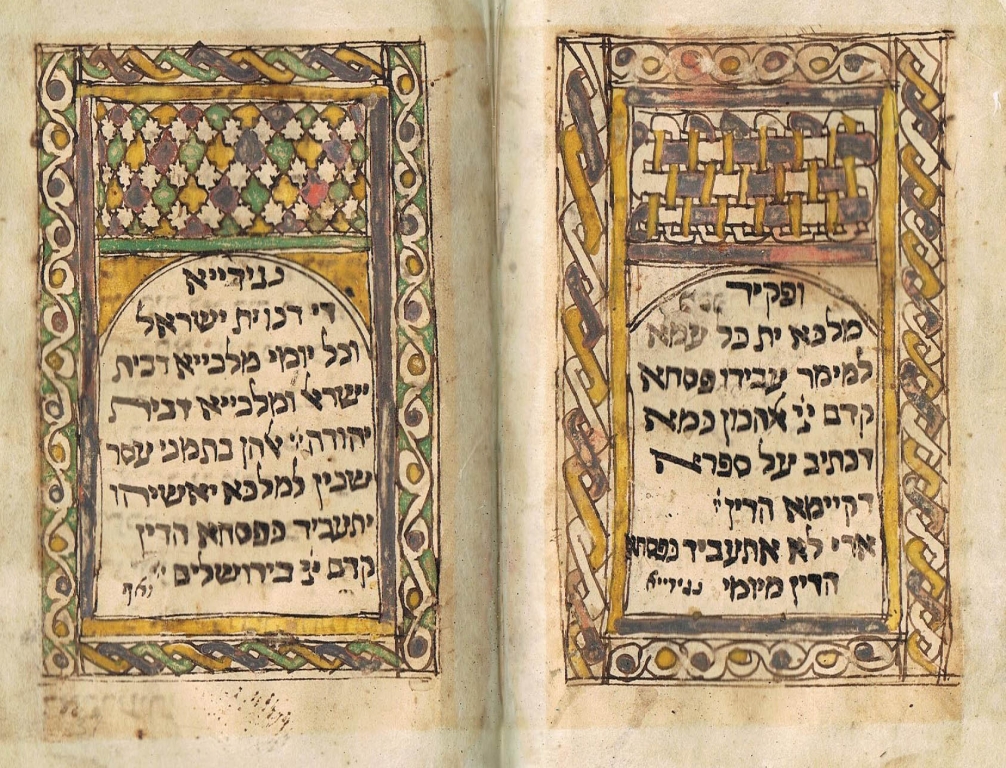 ופקיד
מלכא ית כל עמא
למימר עבידו פסחא
קדם יי אלהכון כמא
דכתיב על ספרא
דקיימא הדין
ארי לא אתעביד כפסחא
הדין מיומי נגידייא
נגידייא
די דנו ית ישראל
וכל יומי מלכייא דבית
ישראל ומלכייא דבית
יהודה אלהן בתמני עסר
שנין למלכא יאשיהו
יתעביד כפסחא הדין
קדם יי בירושלים
ואף